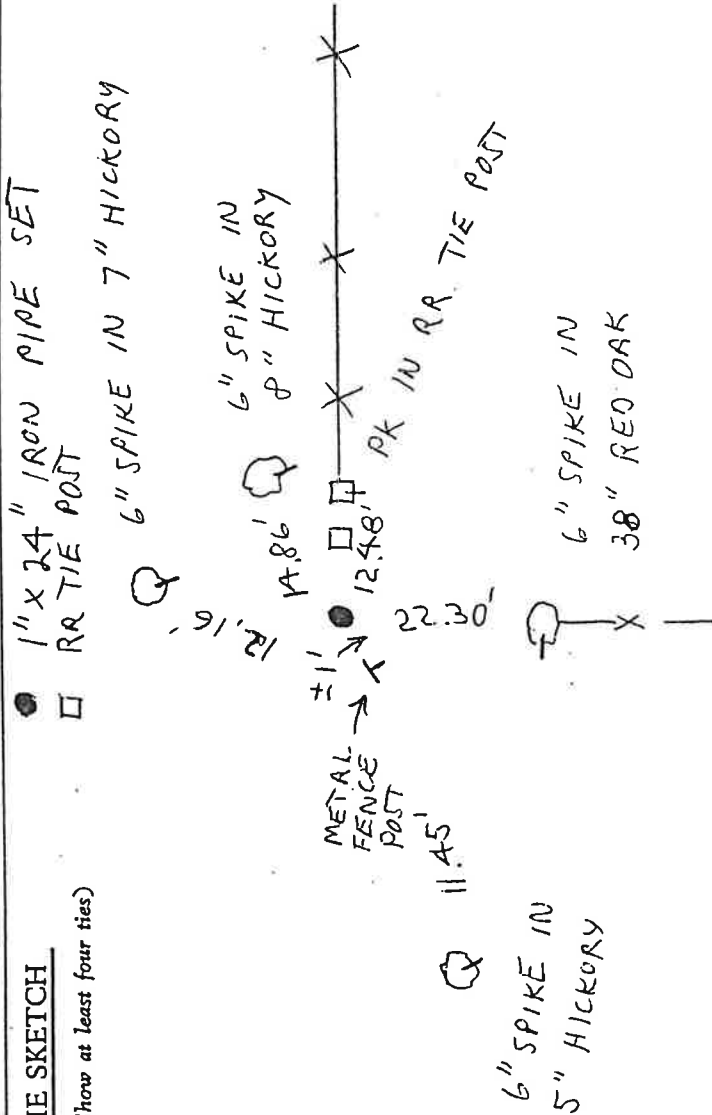 IE SKETCH
how at least four ties)
● 1" X 24" IRON PIPE SET
□ RR TIE POST
6" SPIKE IN 7" HICKORY
12.16'
6" SPIKE IN
8" HICKORY
14.86'
±1'
12.48'
PK IN RR. TIE POST
METAL
FENCE
POST
22.30'
11.45'
6" SPIKE IN
38" RED OAK
6" SPIKE IN
5" HICKORY